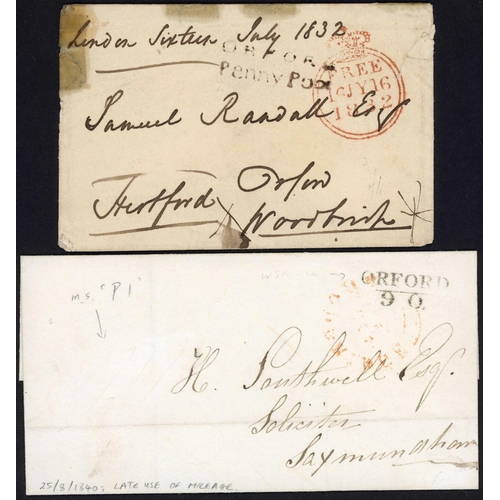 London Sixteen July 1832
ORFORD
Penny Post
FREE
JY 16
1832
Samuel Randall Esq
Hertford Orford
Woodbridge
m.s. "P1"
ORFORD
90
H. Southwell Esq.
Solicitor
Saxmundham
25/8/1840: LATE USE OF MILEAGE